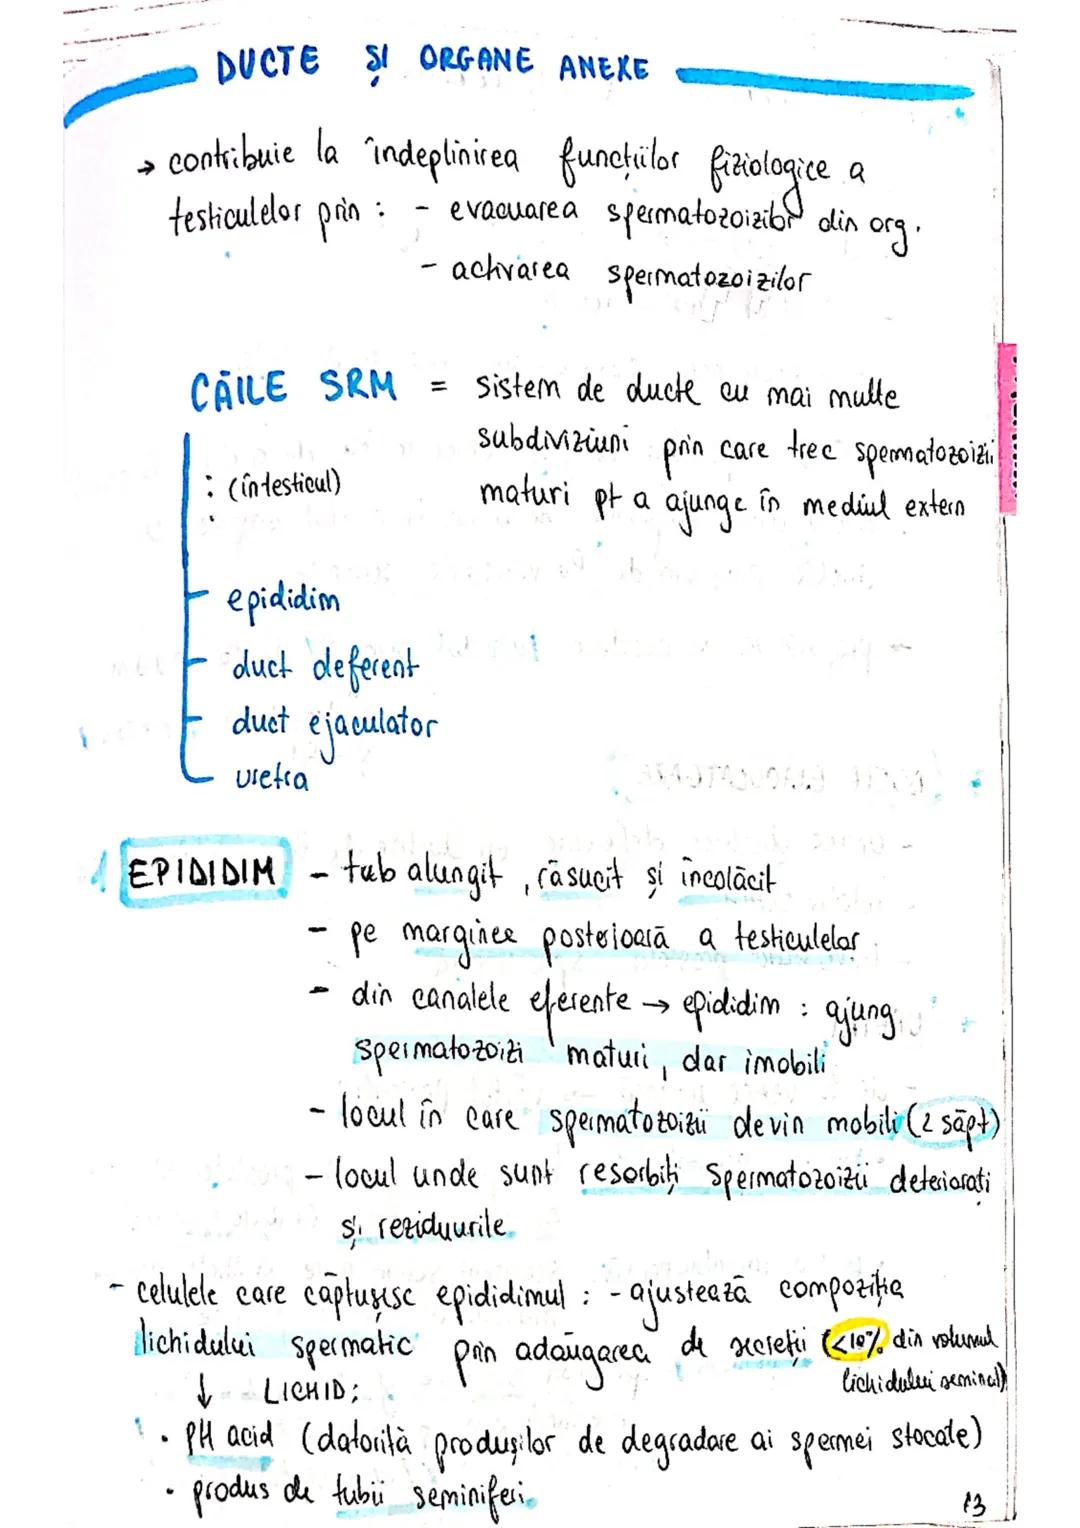 DUCTE ȘI ORGANE ANEXE
→ contribuie la îndeplinirea funcțiilor fiziologice a
testiculelor prin : - evacuarea spermatozoizilor din org.
- activarea spermatozoizilor
CĂILE SRM = sistem de ducte cu mai multe
subdiviziuni prin care trec spermatozoizii
: (în testicul)
maturi pt a ajunge în mediul extern
epididim
duct deferent
duct ejaculator
uretra
1 EPIDIDIM - tub alungit, răsucit și încolăcit
- pe marginea posterioară a testiculelor
- din canalele eferente → epididim : ajung
spermatozoizi maturi, dar imobili
- locul în care spermatozoizii devin mobili (2 săpt)
- locul unde sunt resorbiți spermatozoizii deteriorați
și reziduurile.
- celulele care căptușesc epididimul : - ajustează compoziția
lichidului spermatic prin adăugarea de secreții (<10% din volumul
lichidului seminal)
↓ LICHID:
• PH acid (datorită produșilor de degradare ai spermei stocate)
• produs de tubii seminiferi.
13